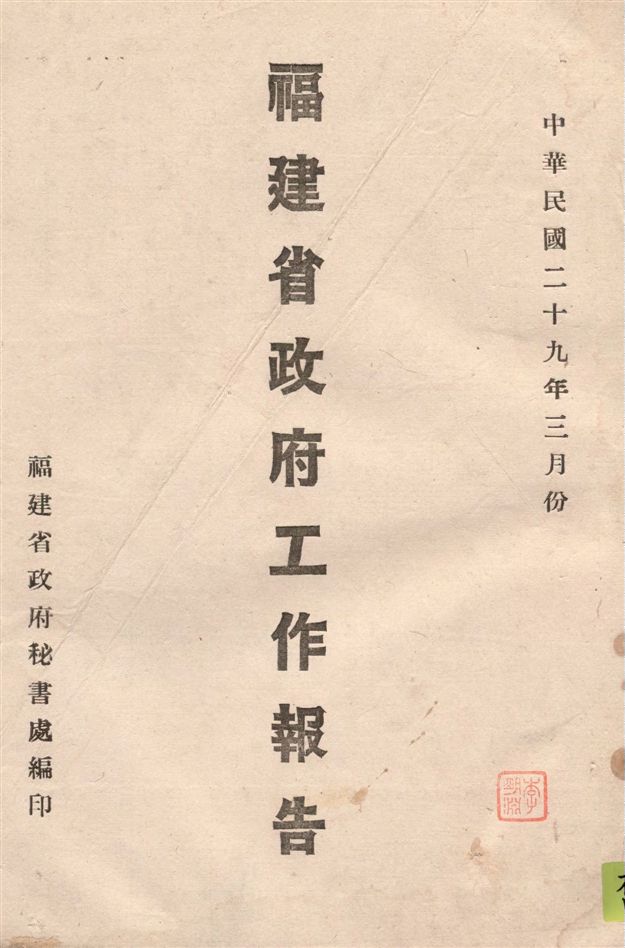 中華民國二十九年三月份
福建省政府工作報告
福建省政府秘書處編印